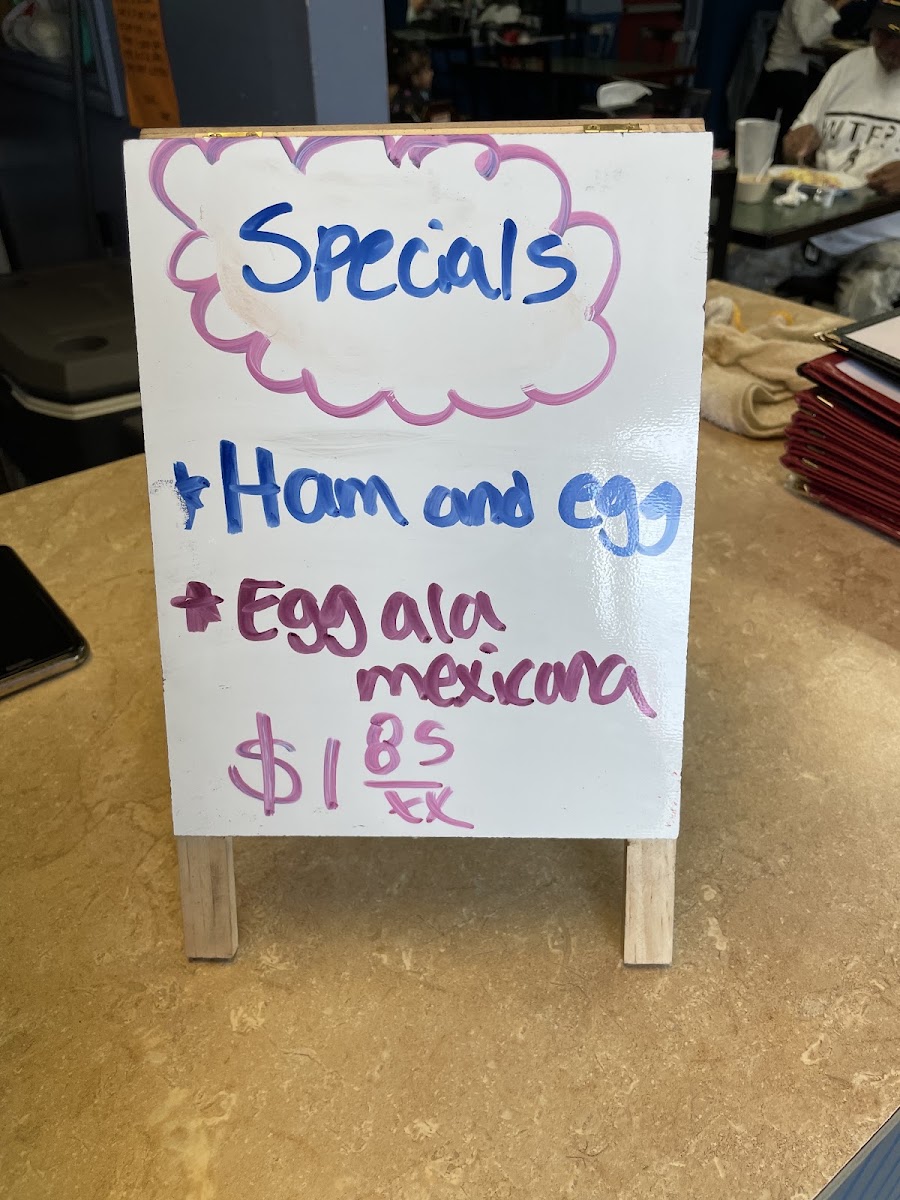 Specials
* Ham and egg
* Egg ala
mexicana
$1 85/xx
WTF?